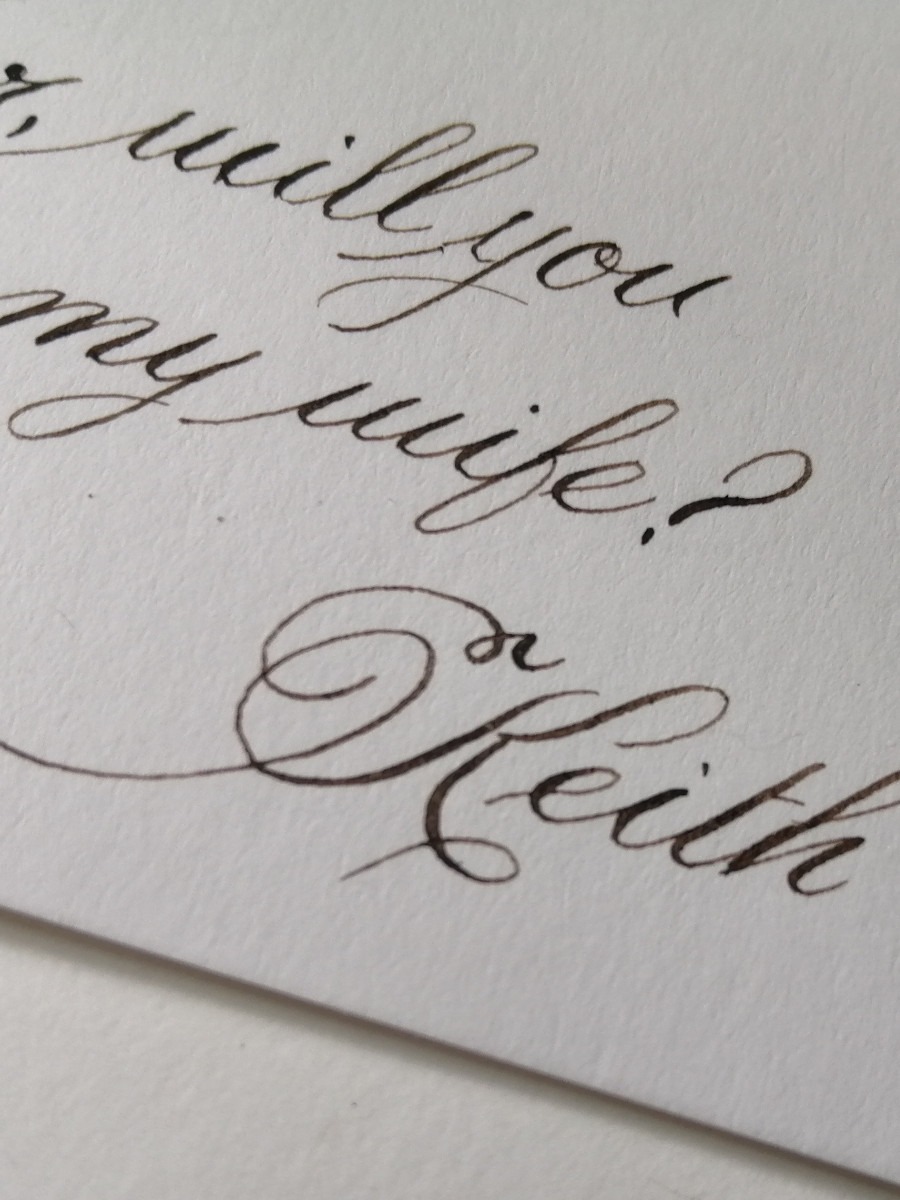 will you
my wife?
Keith